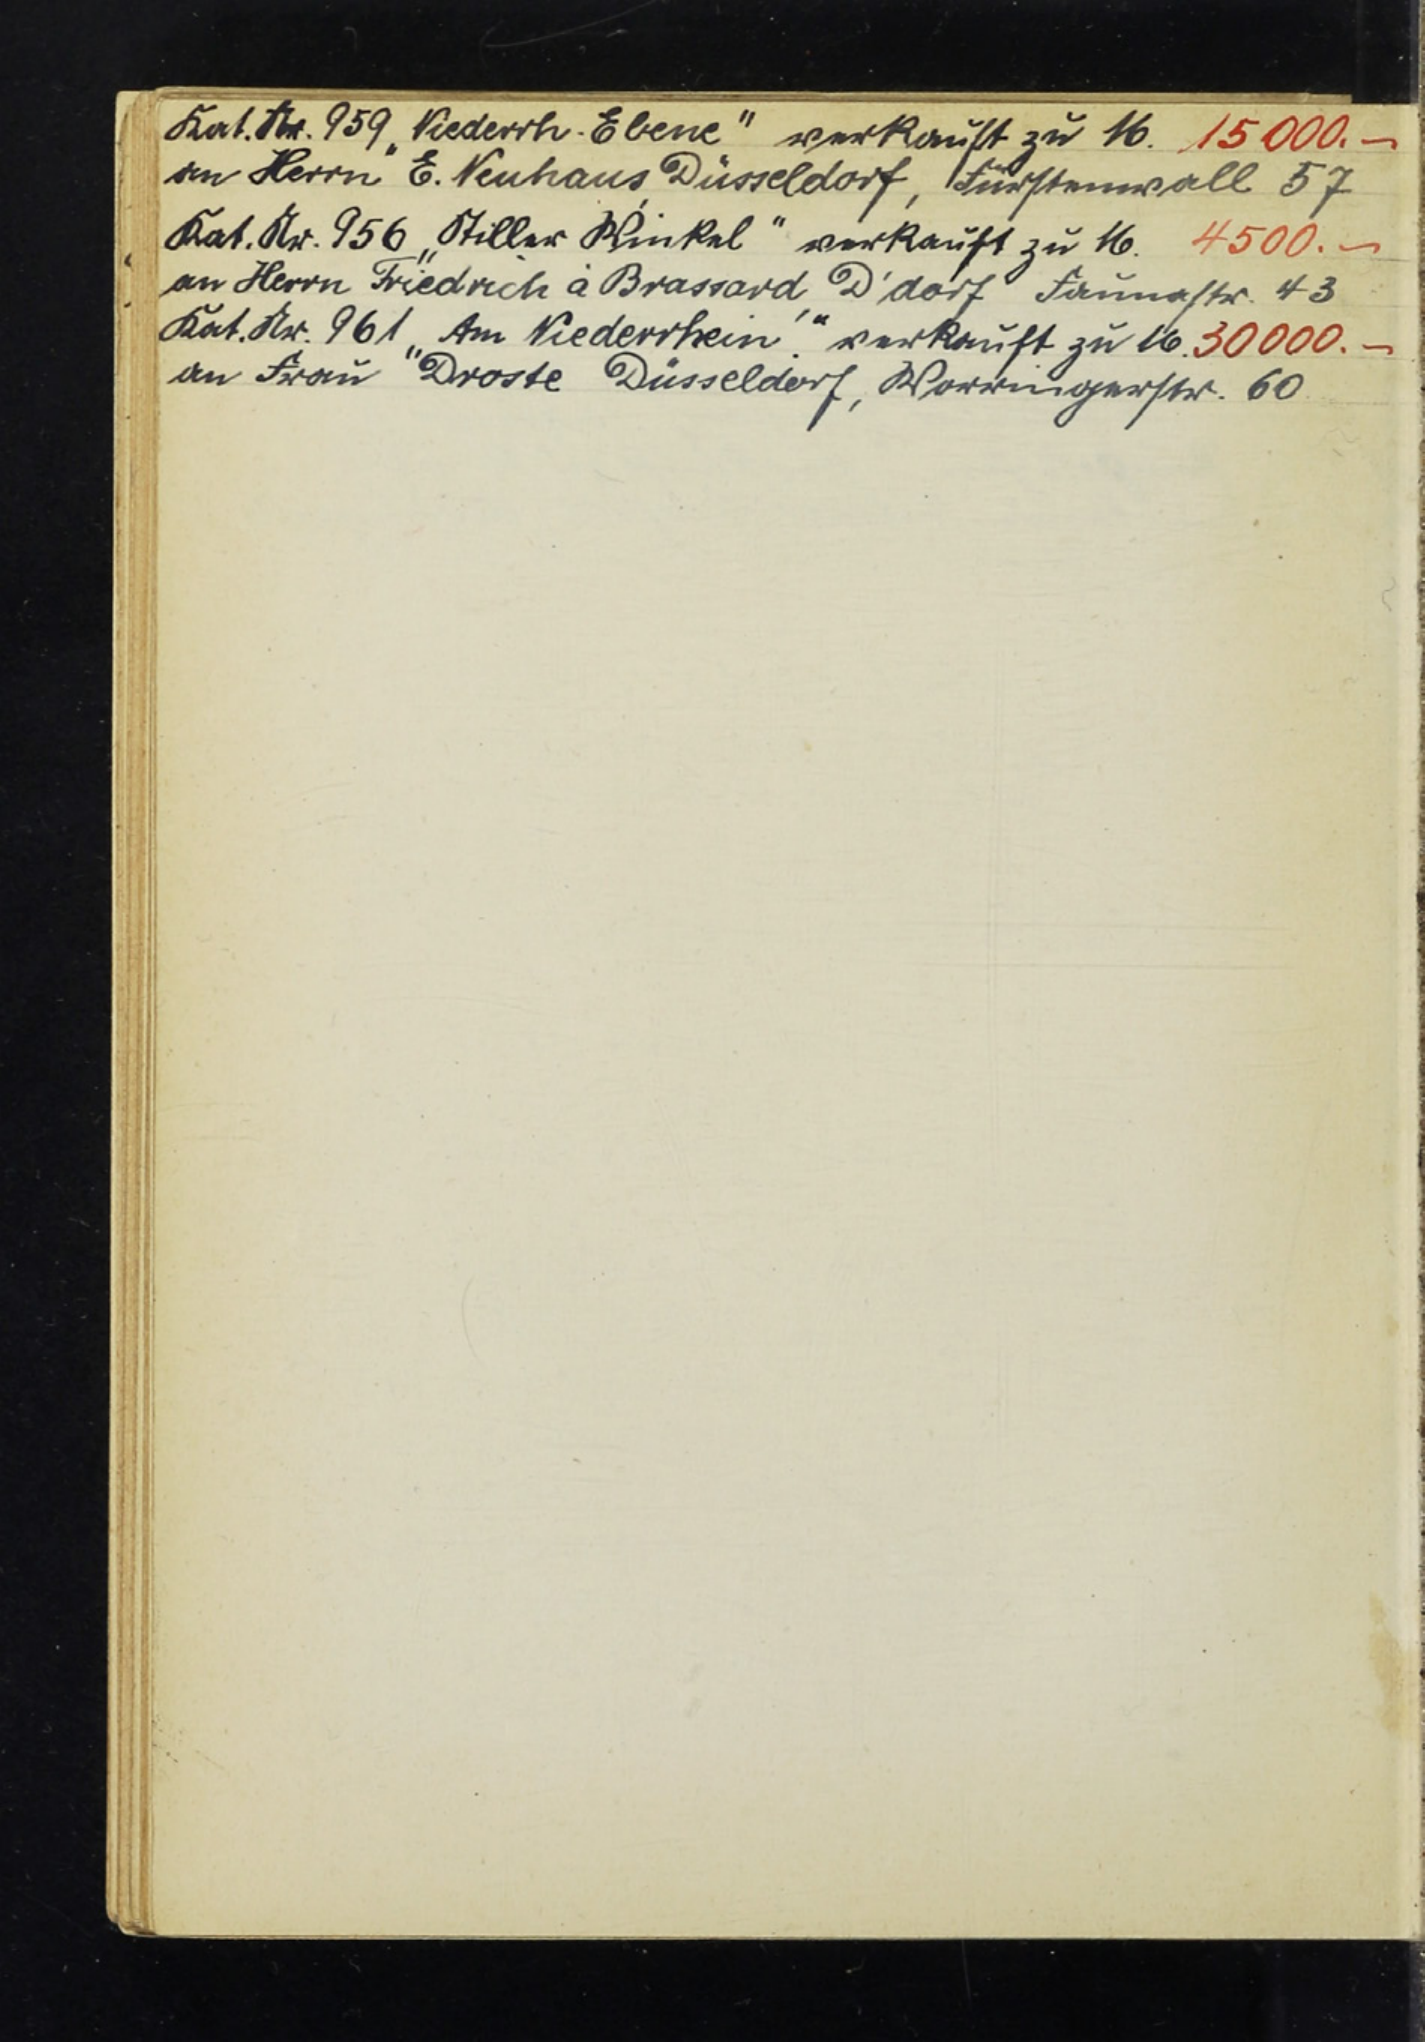 Kat. Nr. 959 „Niederrh. Ebene" verkauft zu M. 15 000.—
an Herrn E. Neuhaus, Düsseldorf, Fürstenwall 57
Kat. Nr. 956 „Stiller Winkel" verkauft zu M. 4500.—
an Herrn Friedrich à Brassard, D'dorf Faunastr. 43
Kat. Nr. 961 „Am Niederrhein!" verkauft zu M. 30000.—
an Frau Droste Düsseldorf, Worringerstr. 60